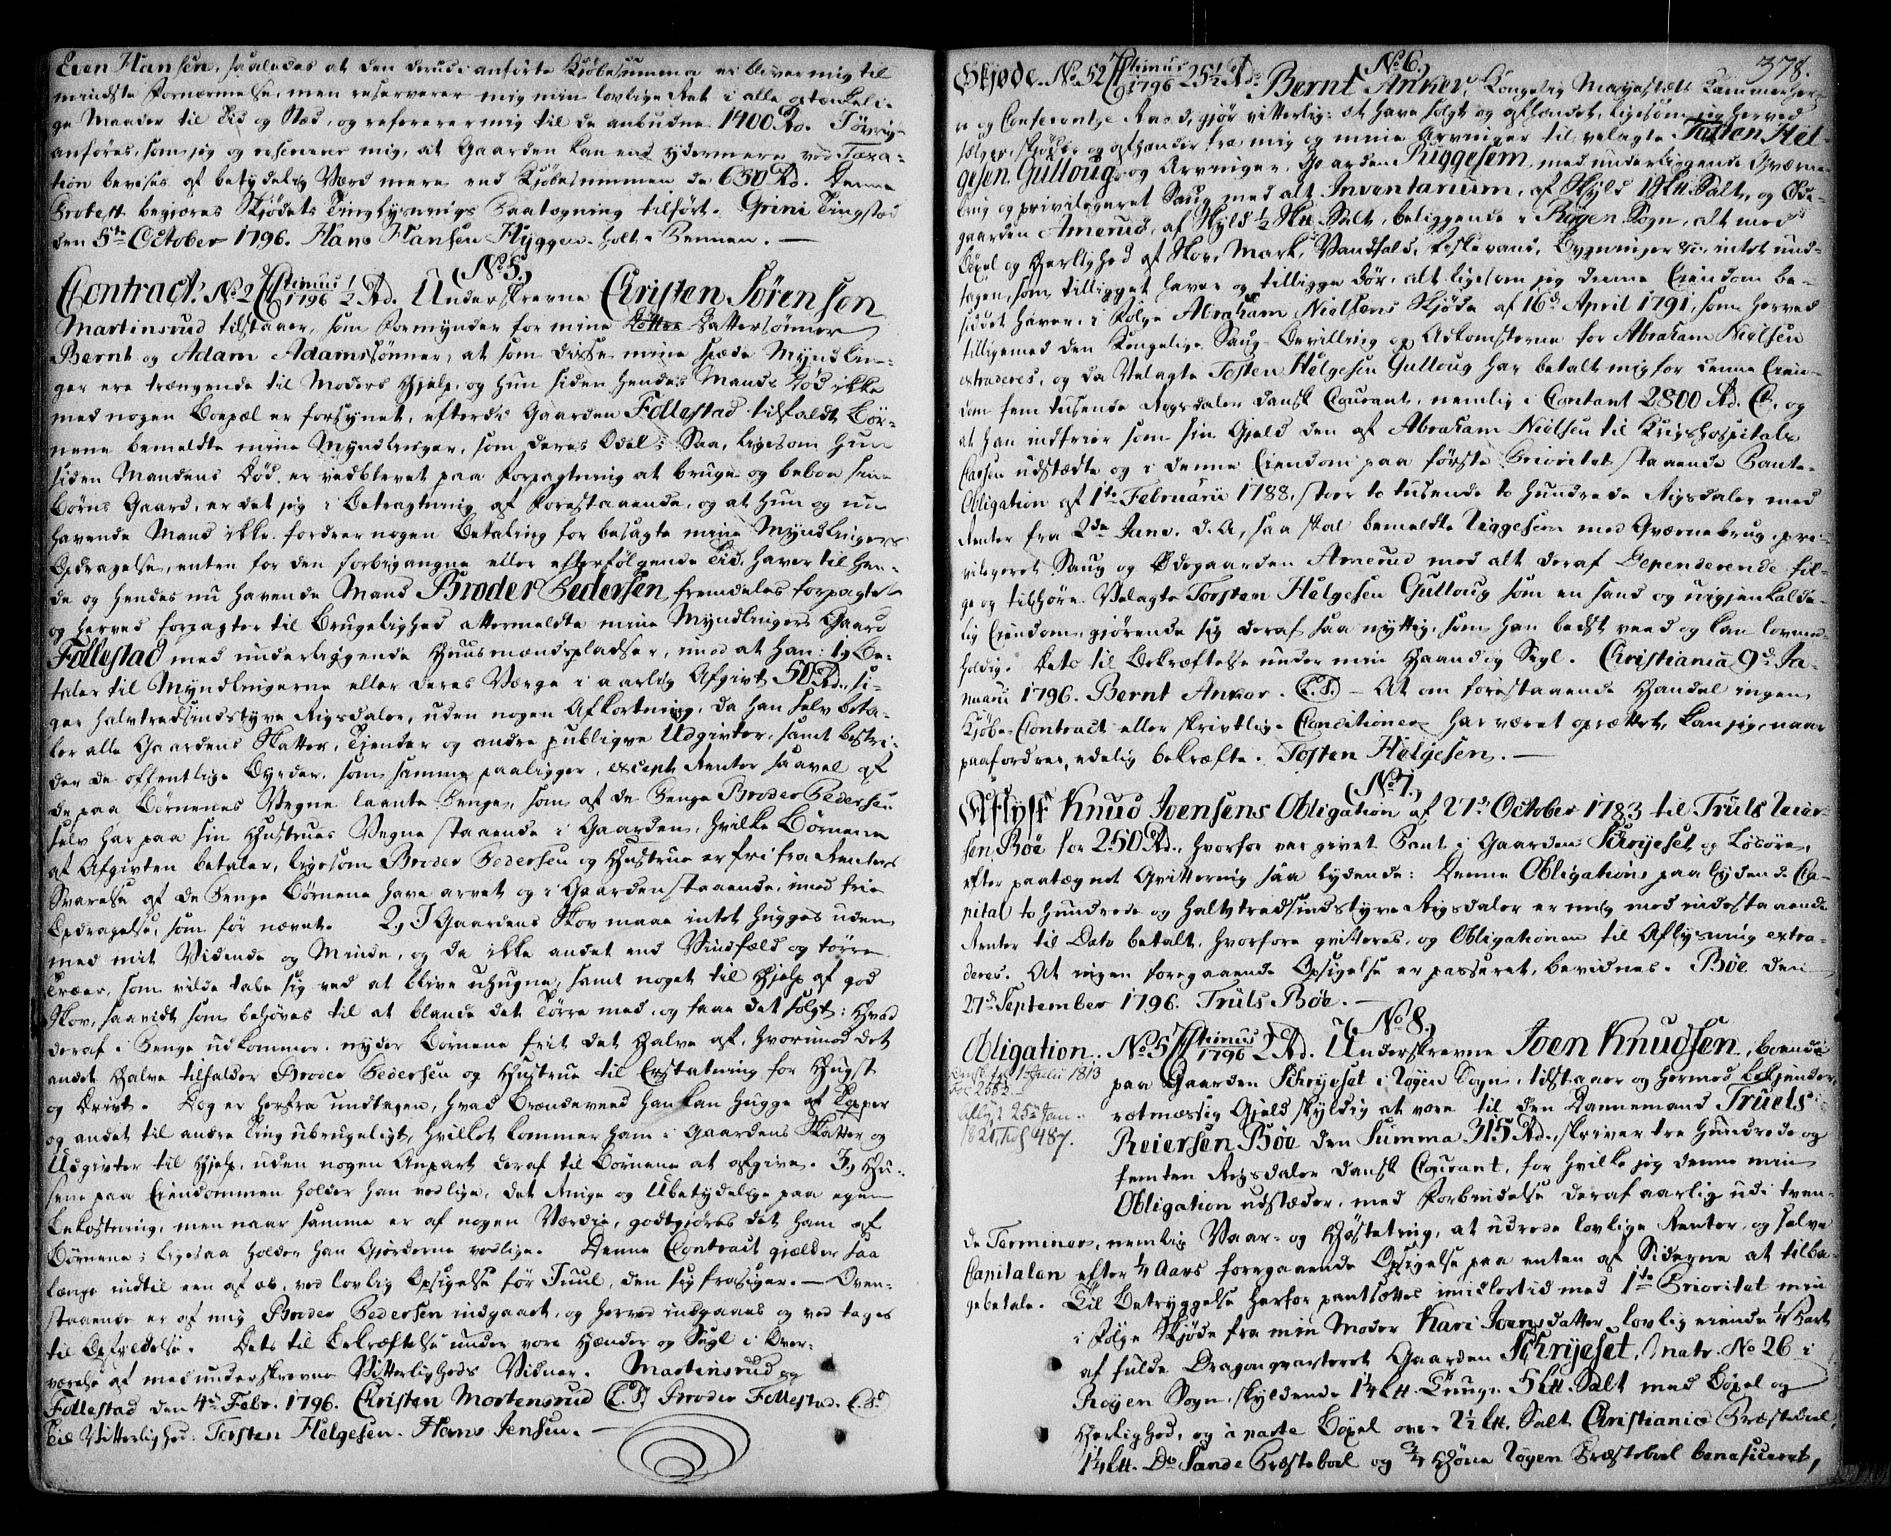 Even Hansen, saaledes at den derudi anførte Kjøbesumma ei bliver mig til
mindste Fornærmelse, men reserverer mig min lovlige Ret i alle optænkeli-
ge Maader til Tid og Stæd, og refererer mig til de anbudne 1400 Rd. I øvrig
anføres, som jeg og reserverer mig, at Gaarden kan end ydermere ved Taxa-
tion bevises af betydelig Værd mere end Kjøbesummen de 650 Rd. Denne
Protest begjeres Skjødets Tinglysnings Paategning tilført. Grini Tingstad
den 5te October 1796. Hans Hansen Hyggen. holt i Pennen. —
No 5.)
Contract. No 2 1796 ½ Rd. Underskrevne Christen Sørensen
Martinsrud tilstaaer, som Formynder for mine Dattersønner
Bernt og Adam Adamssønner, at som disse mine spæde Myndlin-
ger ere trængende til Moders Hjelp, og hun siden hendes Mands Død ikke
med nogen Boepæl er forsynet, efterdi Gaarden Follestad tilfaldt Bør-
nene bemeldte mine Myndlinger, som deres Odel; Saa, ligesom hun
siden Mandens Død er vedblevet paa Forpagtning at bruge og beboe sine
Børns Gaard, er det jeg i Betragtning af Forestaaende, og at hun og nu
havende Mand ikke fordrer nogen Betaling for besagte mine Myndlingers
Opdragelse, enten for den forbigangne eller efterfølgende Tid, haver til hen-
de og hendes nu havende Mand Broder Pedersen fremdeles forpagtet
og herved forpagter til Brugelighed ommeldte mine Myndlingers Gaard
Follestad med underliggende Huusmændspladser, imod at han: 1, Be-
taler til Myndlingerne eller deres Værge i aarlig Afgivt 50 Rd., si-
ger halvtredsindstyve Rigsdaler, uden nogen Afkortning, da han selv beta-
ler alle Gaardens Skatter, Tiender og andre publique Udgivter, samt bestri-
der de offentlige Byrder, som samme paaligger, except Renter saavel af
de paa Børnenes Vegne laante Penge, som af de Penge Broder Pedersen
selv har paa sin Hustrues Vegne staaende i Gaarden, hvilke Børnene
af Afgivten betaler, ligesom Broder Pedersen og Hustrue er fri fra Renters
Svarelse af de Penge Børnene have arvet og i Gaarden staaende, imod frie
Opdragelse, som før nævnt. 2, I Gaardens Skov maae intet hugges uden
med mit Vidende og Minde, og da ikke andet end Vindfæld og tørre
Træer, som vilde tabe sig ved at blive uhugne, samt noget til Hjelp af god
Skov, saavidt som behøves til at blande det Tørre med, og faae det solgt; Hvad
deraf i Penge udkommer, nyder Børnene frit det Halve af, hvorimod det
andet Halve tilfalder Broder Pedersen og Hustrue til Erstatning for Hugst
og Drivt. Dog er herfra undtagen, hvad Brændeveed han kan hugge af Topper
og andet til andre Ting ubrugeligt, hvilket kommer ham i Gaardens Skatter og
Udgivter til Hjelp, uden nogen Anpart deraf til Børnene at afgive. 3, Hu-
sene paa Eiendommen holder han vedlige, det Ringe og Ubetydelige paa egen
Bekostning, men naar samme er af nogen Værdie, godtgjøres det ham af
Børnene; ligesaa holder han Gjerderne vedlige. Denne Contract gjælder saa
længe indtil een af os, ved lovlig Opsigelse før Juul, den sig frasiger. — Oven-
staaende er af mig Broder Pedersen indgaaet, og herved indgaaes og vedtages
til Opfyldelse. Dets til Bekræftelse under vore Hænder og Segl i Over-
værelse af medunderskrevne Vitterligheds Vidner. Martinsrud og
Follestad den 4de Febr. 1796. Christen Mortensrud (L.S.) Broder Follestad. (L.S.)
Til Vitterlighed: Torsten Helgesen. Hans Jensen. —
378.
No 6.)
Skjøde. No 52 1796 25½ Rd. Bernt Anker, Kongelig Mayestæts Kammerher-
re og Conferentze Raad, gjør vitterlig: at have solgt og afhændet, ligesom jeg herved
sælger, skjøder og afhænder fra mig og mine Arvinger til velagte Tosten Hel-
gesen Gulloug og Arvinger, Gaarden Riggesem med underliggende Qværne-
brug og privilegeret Saug med alt Inventarium, af Skyld 1 Sktt. Salt, og Øde-
gaarden Amerud, af Skyld ½ Sktt. Salt, beliggende i Røgen Sogn, alt med
Bøxel og Herlighed af Skov, Mark, Vandfald, Fiskevand, Bygninger &c. intet und-
tagen, som tilligget haver og tilligge bør, alt ligesom jeg denne Eiendom be-
siddet haver, i Følge Abraham Nielsens Skjøde af 16de April 1791, som herved
tilligemed den Kongelige Saug-Bevilling og Adkomsterne for Abraham Nielsen
extraderes, og da Velagte Tosten Helgesen Gulloug har betalt mig for denne Eien-
dom fem tusende Rigsdaler dansk Courant, nemlig i Contant 2800 Rd. C., og
at han indfrier som sin Gjeld den af Abraham Nielsen til Krigshospitals
Cassen udstædte og i denne Eiendom paa første Prioritet staaende Pante-
Obligation af 1te Februarii 1788, stoer to tusende to hundrede Rigsdaler med
Renter fra 2den Janv. d. A., saa skal bemeldte Riggesem med Qværnebrug, pri-
vilegeret Saug og Ødegaarden Amerud med alt deraf Dependerende føl-
ge og tilhøre Velagte Torsten Helgesen Gulloug som en sand og uigjenkalde-
lig Eiendom, gjørende sig deraf saa nyttig, som han bedst veed og kan lovmed-
holdig. Dets til Bekræftelse under min Haand og Segl. Christiania 9de Ja-
nuarii 1796. Bernt Anker. (L.S.) — At om forestaaende Handel ingen
Kjøbe-Contract eller skrivtlige Conditioner har været oprettet, kan jeg, naar
paafordres, edelig bekræfte. Tosten Helgesen. —
No 7.)
Aflyst Knud Joensens Obligation af 27de October 1783 til Truls Reier-
sen Bøe for 250 Rd., hvorfor var givet Pant i Gaarden Schryeset og Løsøre,
efter paategnet Qvittering saa lydende: Denne Obligations paalydende Ca-
pital to hundrede og halvtredsindstyve Rigsdaler er mig med indestaaende
Renter til Dato betalt, hvorfore qvitteres, og Obligationen til Aflysning extra-
deres. At ingen foregaaende Opsigelse er passeret, bevidnes. Bøe den
27de September 1796. Truls Bøe. —
No 8.)
Obligation. No 5 1796 2 Rd. Underskrevne Joen Knudsen, boende
1 Julii 1813
paa Gaarden Schryeset i Røgen Sogn, tilstaaer og hermed bekjender
Aflyst 25de Jan.
retmæssig Gjeld skyldig at være til den Dannemand Truels
1821, Fol. 487.
Reiersen Bøe den Summa 315 Rd., skriver tre hundrede og
femten Rigsdaler dansk Courant, for hvilke jeg denne min
Obligation udstæder, med Forbindelse deraf aarlig udi tven-
de Terminer, nemlig Vaar- og Høsteting, at udrede lovlige Renter, og selve
Capitalen efter ¼ Aars foregaaende Opsigelse paa enten af Siderne at tilba-
gebetale. Til Betryggelse herfor pantsættes imidlertid med 1te Prioritet min
i Følge Skjøde fra min Moder Kari Joensdatter lovlig eiende ½ Part
af fulde Dragonqvarteret Gaarden Schryeset, Matr. No 26 i
Røgen Sogn, skyldende 1¼ Ltt. Tunge 5 Ltt. Salt med Bøxel og
Herlighed, og i næste Bøxel over 2½ Ltt. Salt Christiania Præsteboel,
1¼ Ltt. Do Sande Præsteboel og ¾ Høne Røgen Præsteboel beneficeret,